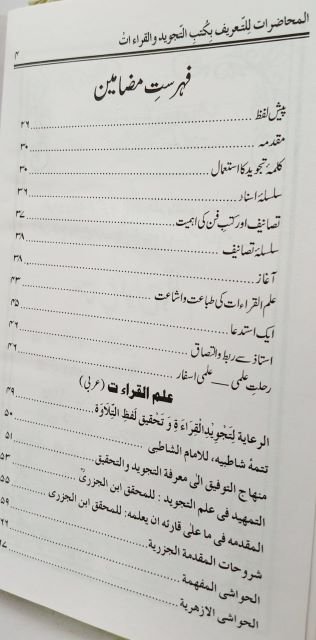 المحاضرات لِلتعريف بِكُتبِ التّجويد والقراءات
۴
فہرستِ مضامین
پیش لفظ ۲۶
مقدمہ ۳۰
کلمۂ تجوید کا استعمال ۳۰
سلسلۂ اسناد ۳۶
تصانیف اور کتبِ فن کی اہمیت ۳۷
سلسلۂ تصانیف ۳۸
آغاز ۳۸
علم القراءات کی طباعت و اشاعت ۴۳
ایک استدعا ۴۵
استاذ سے ربط و التصاق ۴۶
رحلتِ علمی __ علمی اسفار ۴۶
علم القراءات (عربی)
الرعایة لِتَجوِیدِ القِرَاءَةِ وَ تَحقیقِ لَفظِ التِّلَاوَة ۴۹
تتمۂ شاطبیه، للامام الشاطبی ۵۰
منهاج التوفيق الى معرفة التجويد والتحقيق ۵۱
التمهيد فی علم التجويد : للمحقق ابن الجزریؒ ۵۳
المقدمه فی ما علی قارئه ان یعلمه: للمحقق ابن الجزری ۵۵
شروحات المقدمة الجزرية ۵۹
الحواشی المفهمة
الحواشی الازهرية